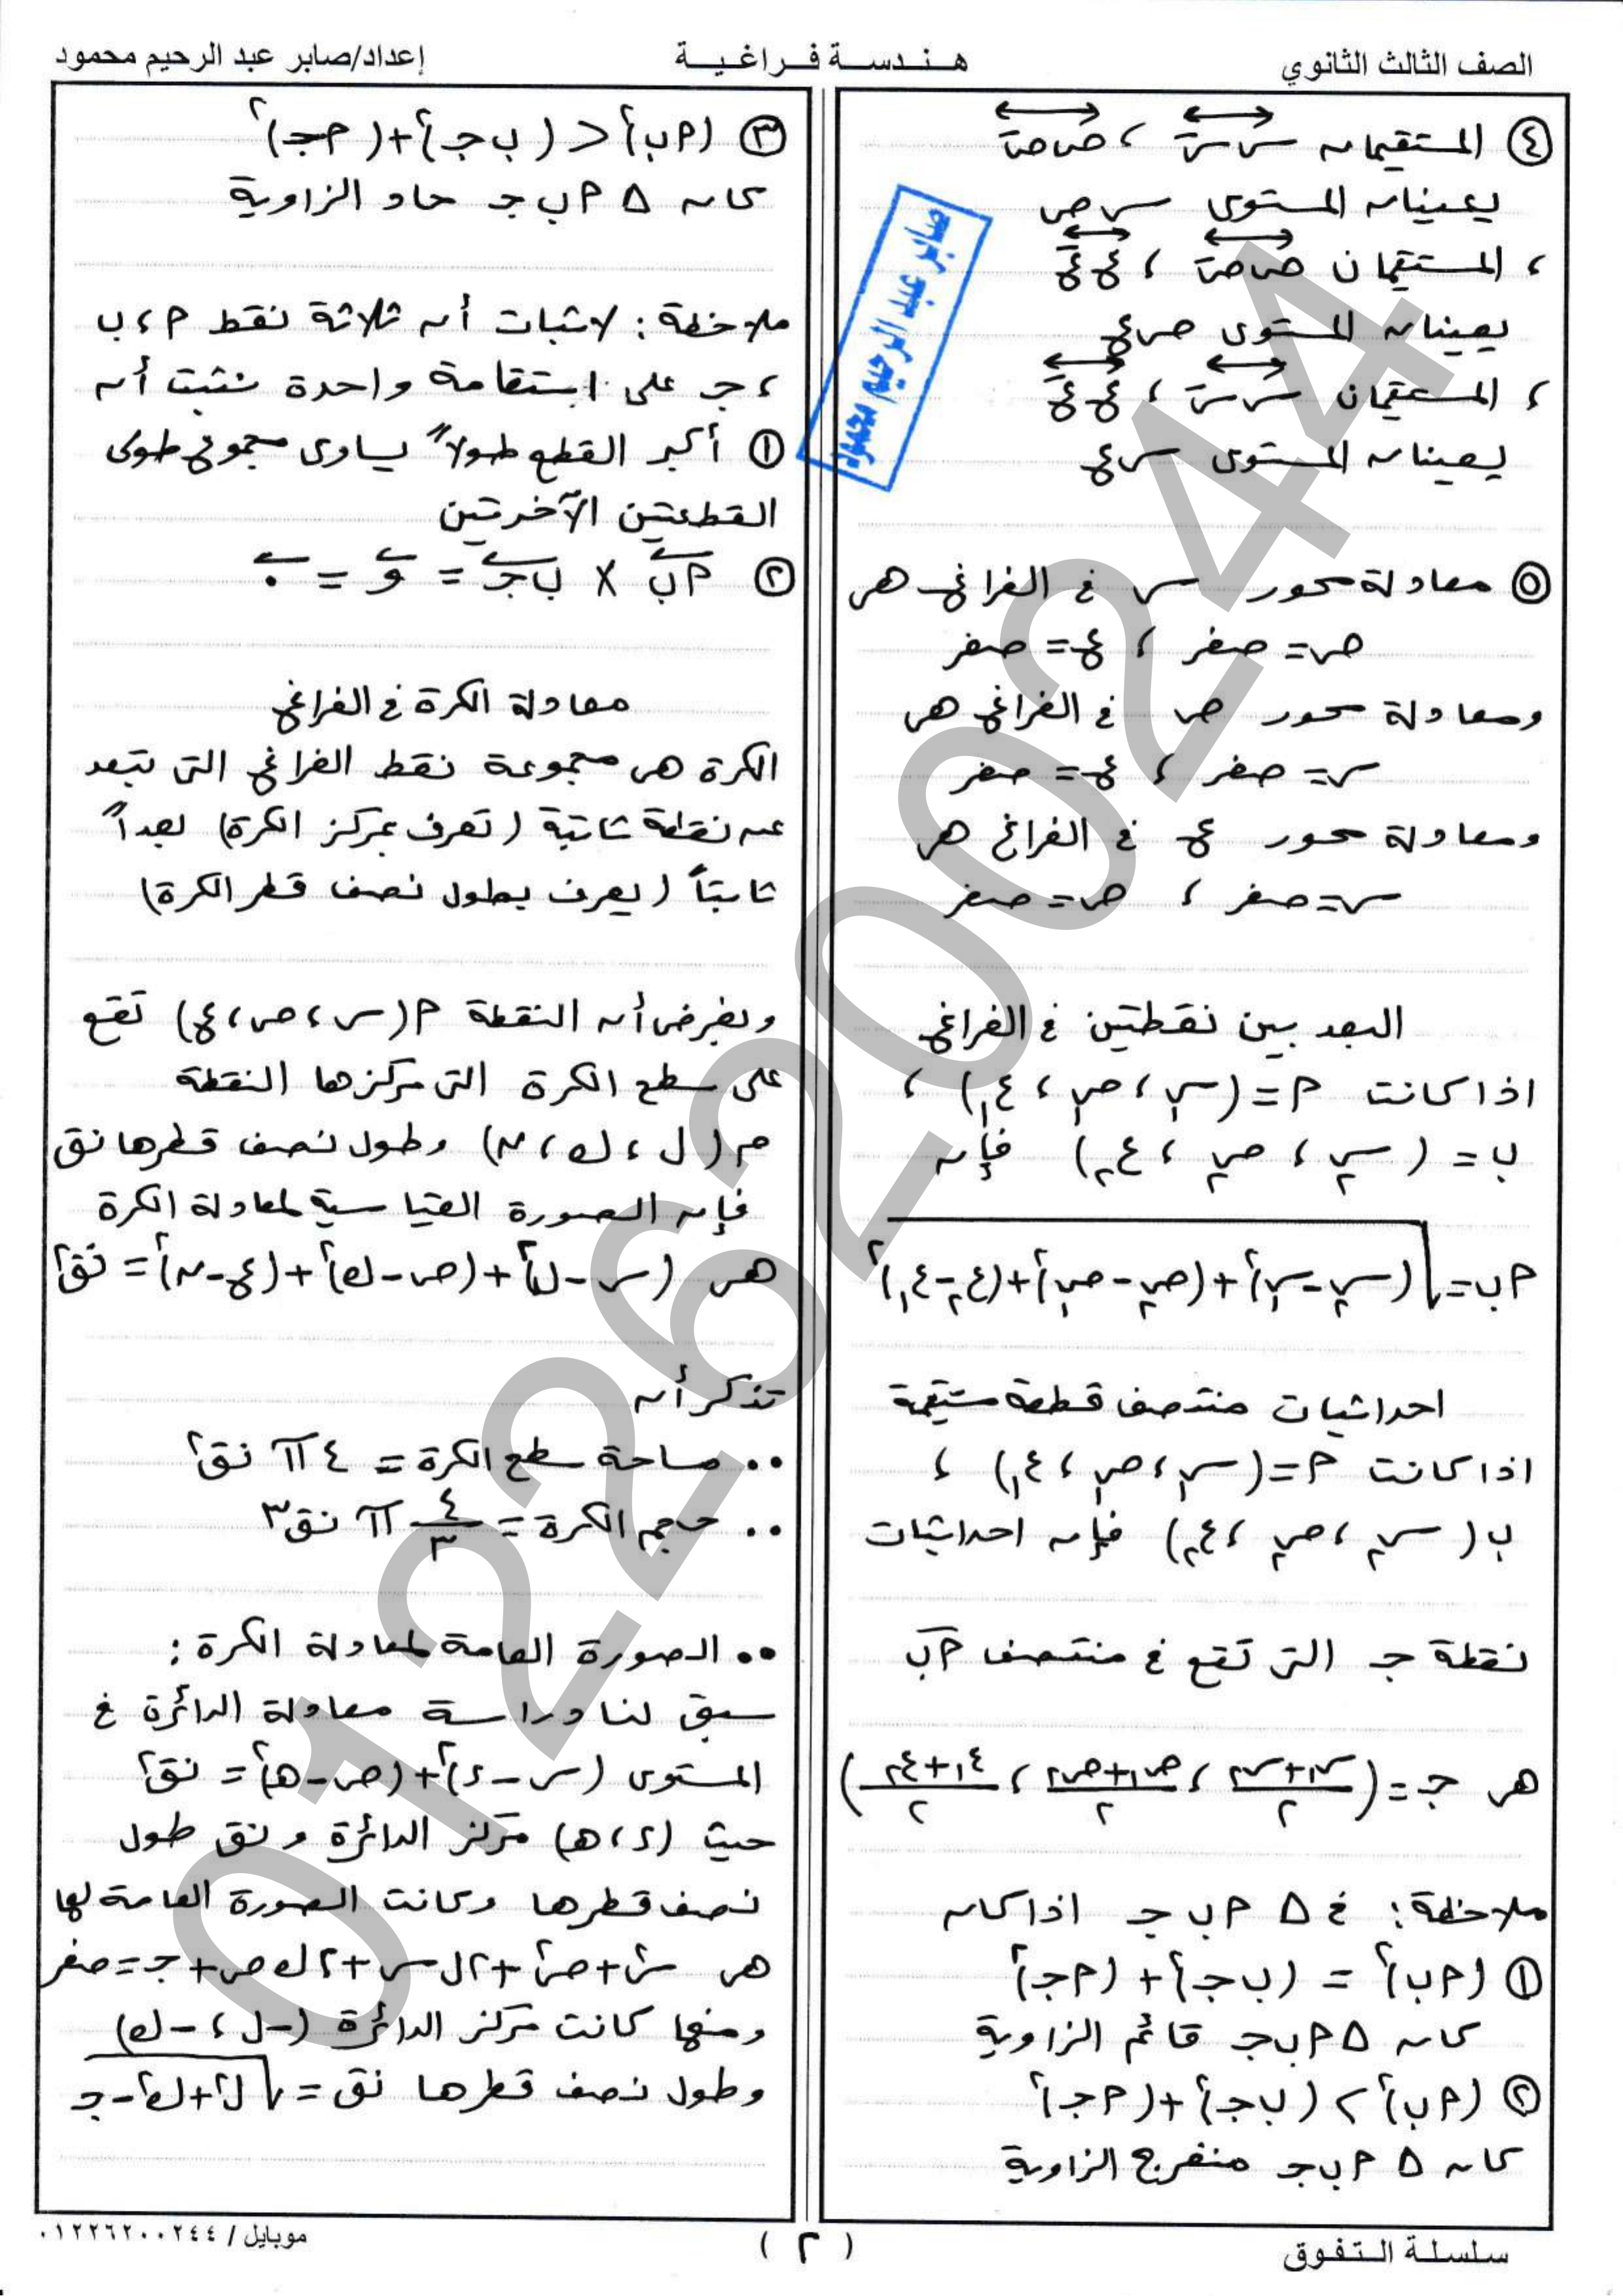 الصف الثالث الثانوي
هندسة فراغية
إعداد/صابر عبد الرحيم محمود
④ المستقيمان س سَ ، ص صَ
يعينان المستوى س ص
، المستقيمان ص صَ ، ع عَ
يعينان المستوى ص ع
، المستقيمان س سَ ، ع عَ
يعينان المستوى س ع
⑤ معادلة محور س في الفراغ هى
ص = صفر ، ع = صفر
ومعادلة محور ص في الفراغ هى
س = صفر ، ع = صفر
ومعادلة محور ع في الفراغ هى
س = صفر ، ص = صفر
البعد بين نقطتين في الفراغ
اذا كانت م = (س₁ ، ص₁ ، ع₁) ،
ب = (س₂ ، ص₂ ، ع₂) فإن
م ب = √(س₂-س₁)²+(ص₂-ص₁)²+(ع₂-ع₁)²
احداثيات منتصف قطعة مستقيمة
اذا كانت م = (س₁ ، ص₁ ، ع₁) ،
ب (س₂ ، ص₂ ، ع₂) فإن احداثيات
نقطة جـ التى تقع في منتصف م ب
هى جـ = (س₁+س₂/٢ ، ص₁+ص₂/٢ ، ع₁+ع₂/٢)
ملاحظة: في Δ م ب جـ اذا كان
① (م ب)² = (ب جـ)² + (م جـ)²
كان Δ م ب جـ قائم الزاوية
② (م ب)² > (ب جـ)² + (م جـ)²
كان Δ م ب جـ منفرج الزاوية
③ (م ب)² < (ب جـ)² + (م جـ)²
كان Δ م ب جـ حاد الزاوية
ملاحظة: لاثبات أن ثلاثة نقط م ، ب
، جـ على استقامة واحدة نثبت أن
① أكبر القطع طولاً يساوى مجموع طولى
القطعتين الآخرتين
② م ب × ب جـ = و = ٠
معادلة الكرة في الفراغ
الكرة هى مجموعة نقط الفراغ التى تبعد
عن نقطة ثابتة (تعرف بمركز الكرة) بعداً
ثابتاً (يعرف بطول نصف قطر الكرة)
وبفرض أن النقطة م (س ، ص ، ع) تقع
على سطح الكرة التى مركزها النقطة
م (ل ، ك ، ن) وطول نصف قطرها نق
فإن الصورة القياسية لمعادلة الكرة
هى (س-ل)²+(ص-ك)²+(ع-ن)² = نق²
تذكر أن
•• مساحة سطح الكرة = ٤ π نق²
•• حجم الكرة = ٤/٣ π نق³
•• الصورة العامة لمعادلة الكرة :
سبق لنا دراسة معادلة الدائرة في
المستوى (س-د)²+(ص-هـ)² = نق²
حيث (د ، هـ) مركز الدائرة و نق طول
نصف قطرها وكانت الصورة العامة لها
هى س²+ص²+٢ل س+٢ك ص+جـ = صفر
ومنها كانت مركز الدائرة (-ل ، -ك)
وطول نصف قطرها نق = √ل²+ك²-جـ
صابر عبد الرحيم محمود
01226200244
سلسلة التفوق
( ٢ )
موبايل / ٠١٢٢٦٢٠٠٢٤٤